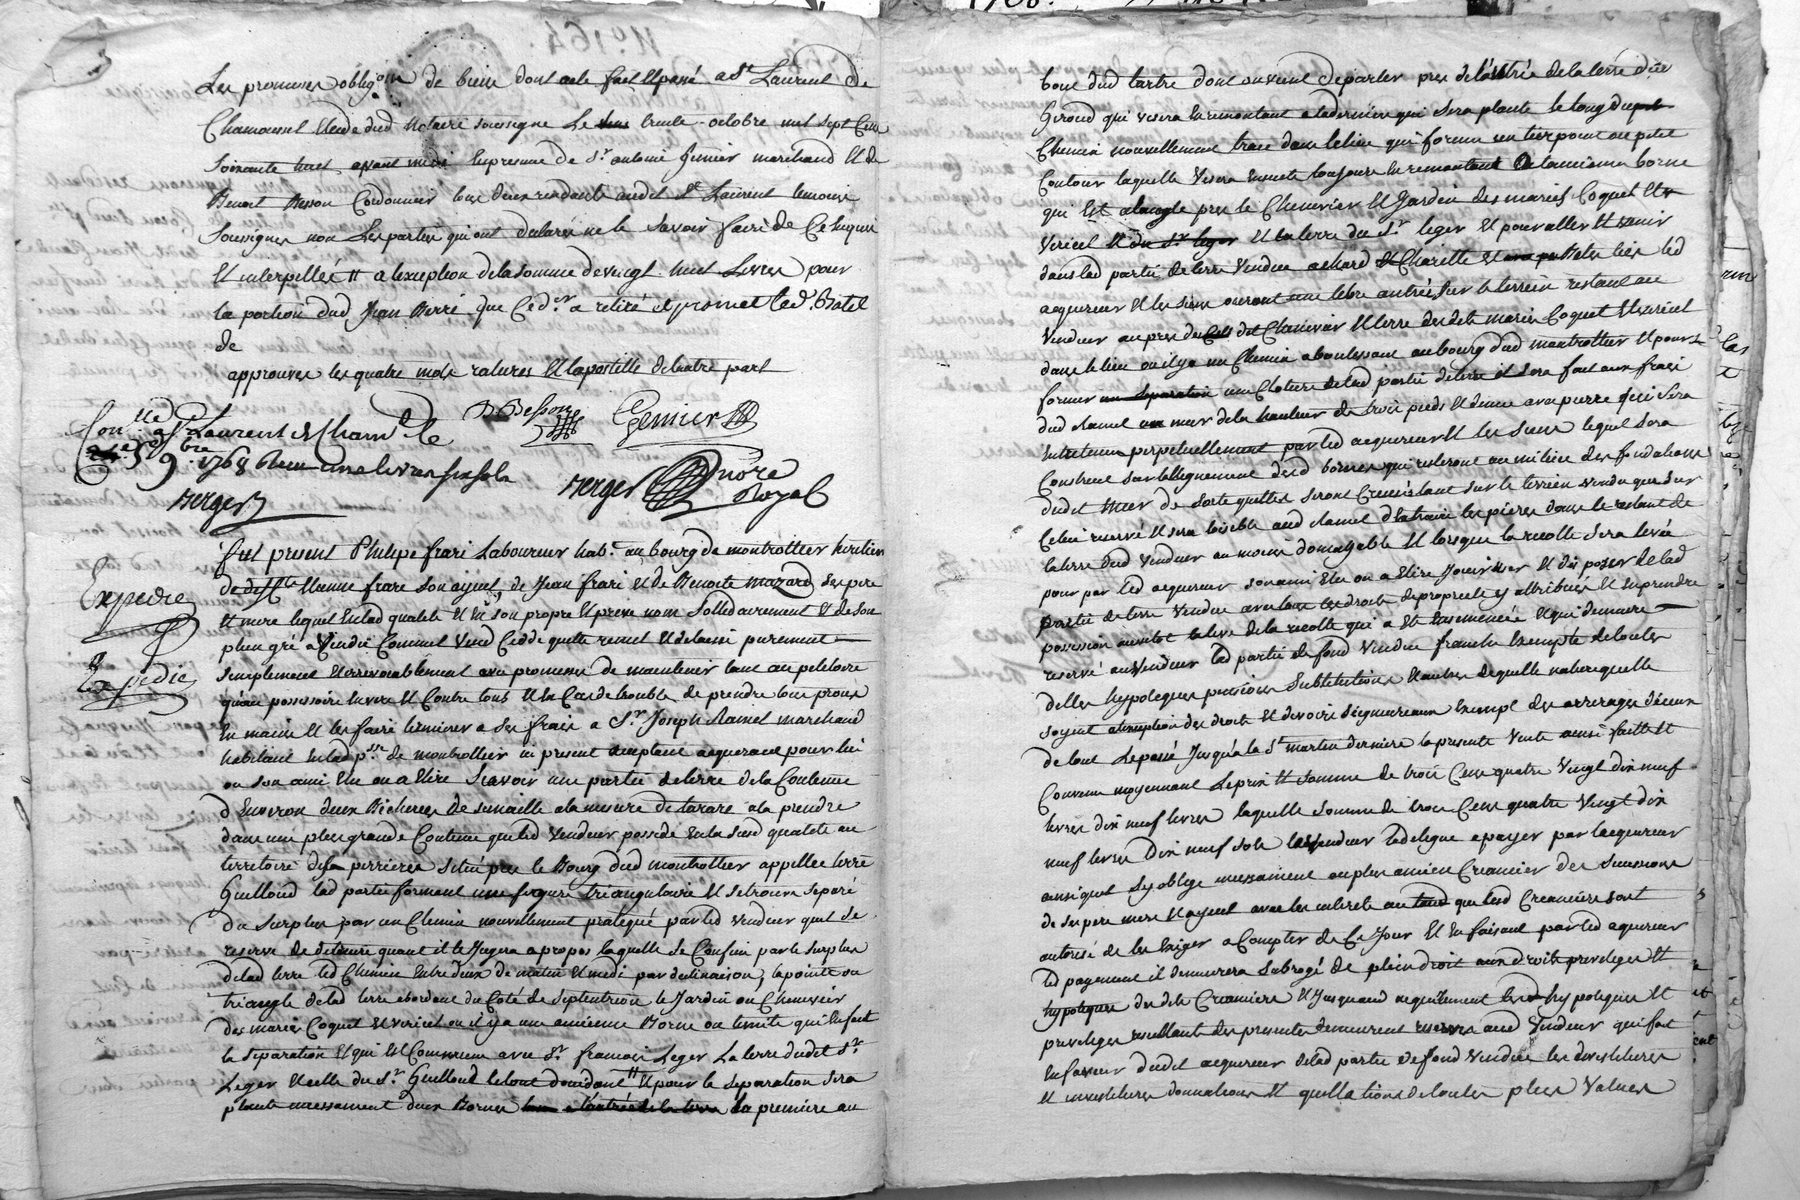 N° 164.
Les promesses oblig.on de biens dont acte fait et passé a St Laurent de
Chamousset Etude dud Notaire soussigné Le trente octobre mil sept Cent
soixante huit avant midi En presence de Sr antoine Gemier marchand et de
Benoit Besson Cordonnier tous deux residants audit St Laurent temoins
soussignés non Les parties qui ont declaré ne le savoir faire de Ce Enquis
et interpellés a lexception de la somme de vingt huit Livres pour
la portion dud Jean Pierre que Led.
de
approuvés les quatre mots raturés et lapostille delautre part
Con.llé a St Laurent de Cham.t le
5 9.bre 1768
B Besson
Gemier
Berger
Berger Nore Royal
Expedié
Expedié
fut present Philipe frari Laboureur hab.t au bourg de montrottier heritier
frare son ayeul, de Jean frari et de Benoite mazard ses pere
et mere lequel Enlad qualité et En son propre et privé nom Sollidairement et de son
plein gré a Vendu Comme il Vend Cedde quitte remet et delaisse purement
simplement et irrevocablement avec promesse de maintenir tant au petitoire
quau possessoire Envers et Contre tous et En Cas de trouble de prendre leur
En main et les faire terminer a ses frais a Sr Joseph Ramel marchand
habitant Enlad p.sse de montrottier ici present acceptant acquereur pour lui
ou son ami Elu ou a Elire Scavoir une partie de terre de la Contenue
d'Environ deux Bicherées de semaille a la mesure de tarare a la prendre
dans une plus grande Contenue que led Vendeur possede Enla susd qualité au
territoire des perrieres situé pres le Bourg dud montrottier appellée terre
Guilloud lad partie formant une figure triangulaire et se trouve separé
Du surplus par un Chemin nouvellement pratiqué par led vendeur quil se
reserve de detruire quant il le Jugera a propos laquelle se Confine par le surplus
de lad terre led Chemin Entre deux de matin et midi par declinaison, la pointe ou
triangle de lad terre abordant du Coté de Septentrion le Jardin ou Chenevier
des mariés Coquet et Vericel ou il y a une ancienne Borne ou limite qui En fait
la separation et qui Est Commune avec Sr françois Leger La terre dudit Sr
Leger et celle du Sr Guilloud le tout doccidant et pour la separation sera
planté incessament deux Bornes la premiere au
bout dud tartre dont on vient de parler pres de la terre dud
Giroud qui visera En remontant a la derniere qui sera planté le long du
Chemin nouvellement tracé dans le lieu qui forme un tiers point ou petit
Contour laquelle visera Ensuite toujours En remontant a lancienne borne
qui Est a langle pres le Chenevier et Jardin des mariés Coquet et
Vericel et la terre du Sr leger et pour aller et venir
dans lad partie de terre vendue a chard Charette et Betes liés led
acquereur et les siens auront une libre entrée sur le terrein restant au
Vendeur au pres du Chenevier et terre desdits mariés Coquet et Vericel
dans le lieu ou il y a un Chemin aboutissant au bourg dud montrottier et pour
former une Cloture de lad partie de terre il sera fait aux frais
dud Ramel un mur de la hauteur de trois pieds et demi avec pierre qui sera
Entretenu perpetuellement par led acquereur et les siens lequel sera
Construit sur lallignement desd bornes qui resteront au milieu des fondations
dudit mur de sorte quelles seront Creusés tant sur le terrien vendu que sur
Celui reservé et sera loisible aud Ramel dextraire les pierres dans le restant de
la terre dud Vendeur au moins domageable et lorsque la recolte sera levée
pour par led acquereur son ami Elu ou a Elire Jouir user et disposer de lad
partie de terre Vendue avec tous les droits de proprieté y attribués et En prendre
possession aussitot la levée de la recolte qui a Eté Ensemencée et qui demeure
reservé au Vendeur lad partie de fond Vendue franche Exempte de toutes
dettes hypoteques pensions Substitutions et autres de quelle nature quelle
soyent a lexception des droits et devoirs seigneuriaux Exempt des arrerages diceux
de tout le passé Jusqu'a la St martin derniere la presente Vente ainsi faitte et
Convenue moyennant le prix et somme de trois Cens quatre Vingt dix neuf
livres dix neuf livres laquelle somme de trois Cens quatre Vingt dix
neuf livres dix neuf sols le Vendeur delegue a payer par lacquereur
ainsi quil sy oblige incessament au plus ancien Creancier des successions
de ses pere mere et ayeul avec les interets au taux que lesd Creanciers sont
autorisé de les Exiger a Compter de Ce Jour et En faisant par led acquereur
led payement il demeurera subrogé de plein droit aux droits privileges et
hypoteques desdits Creanciers et Jusquaud acquittement les hypoteques et
privileges resultants des presentes demeurent reservés aud Vendeur qui fait
En faveur dudit acquereur de lad partie de fond Vendue les devestitures
et investitures donnations et quittations de toutes plus Values